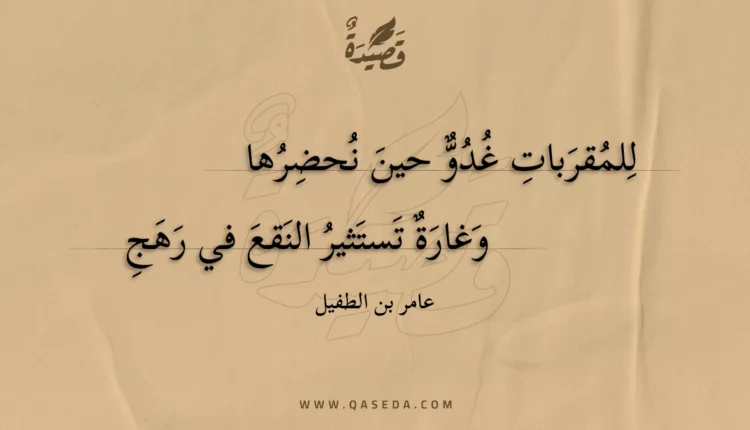 قَصِيْدَةٌ
لِلمُقرَباتِ غُدُوٌّ حينَ نُحضِرُها
وَغارَةٌ تَستَثيرُ النَقعَ في رَهَجِ
عامر بن الطفيل
WWW.QASEDA.COM